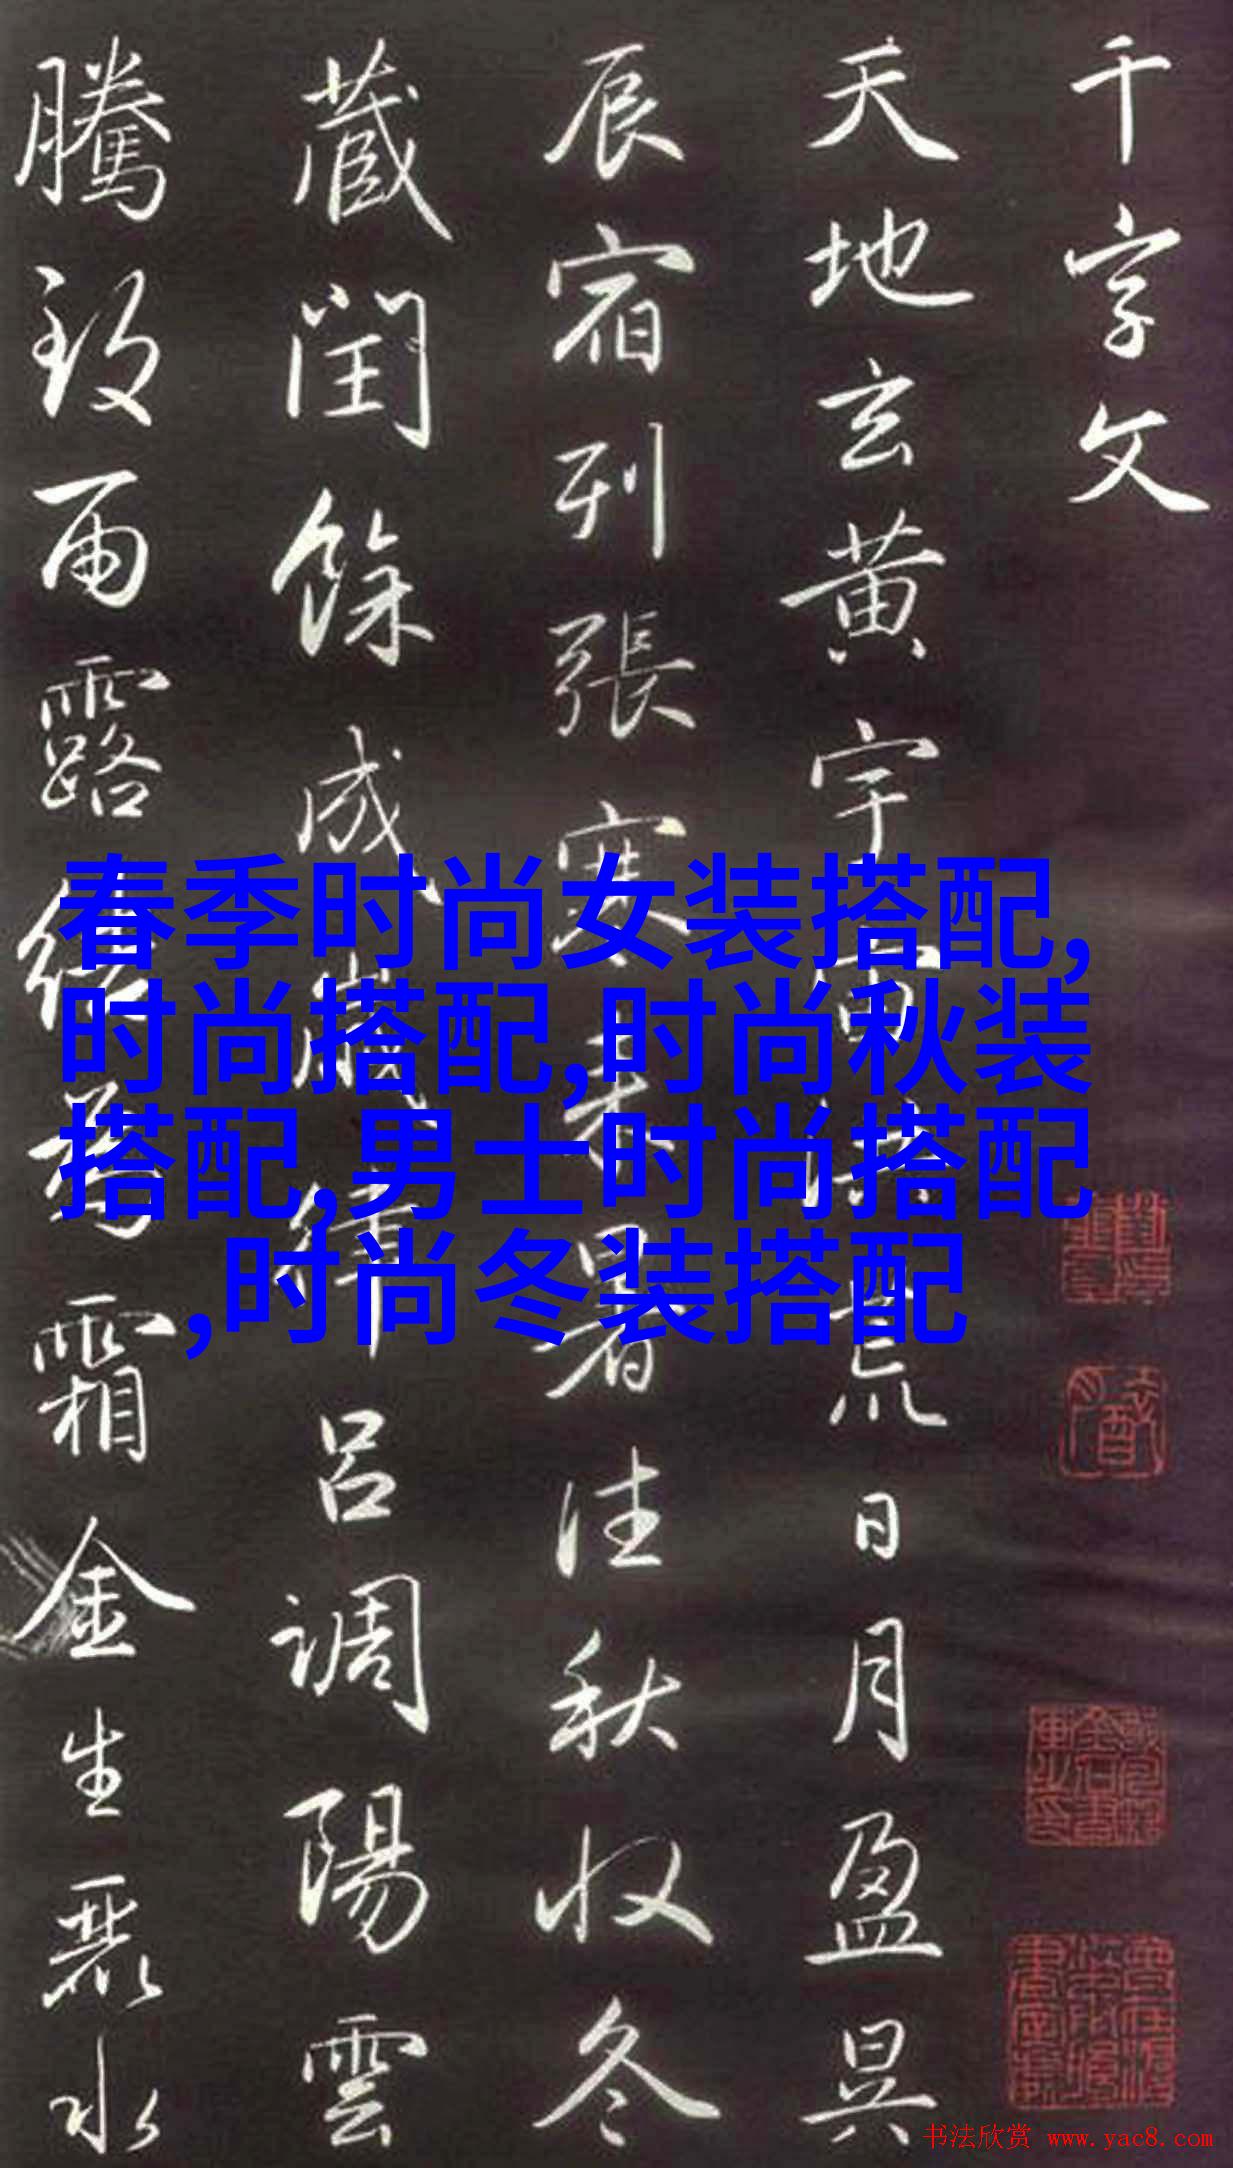 千字文
天地玄黄宇宙洪荒日月盈昃
辰宿列張寒来暑往秋收冬
藏閏餘成歲律吕調陽雲
騰致雨露結為霜金生麗水
春季时尚女装搭配,
时尚搭配,时尚秋装
搭配,男士时尚搭配
,时尚冬装搭配
书法欣赏 www.yac8.com